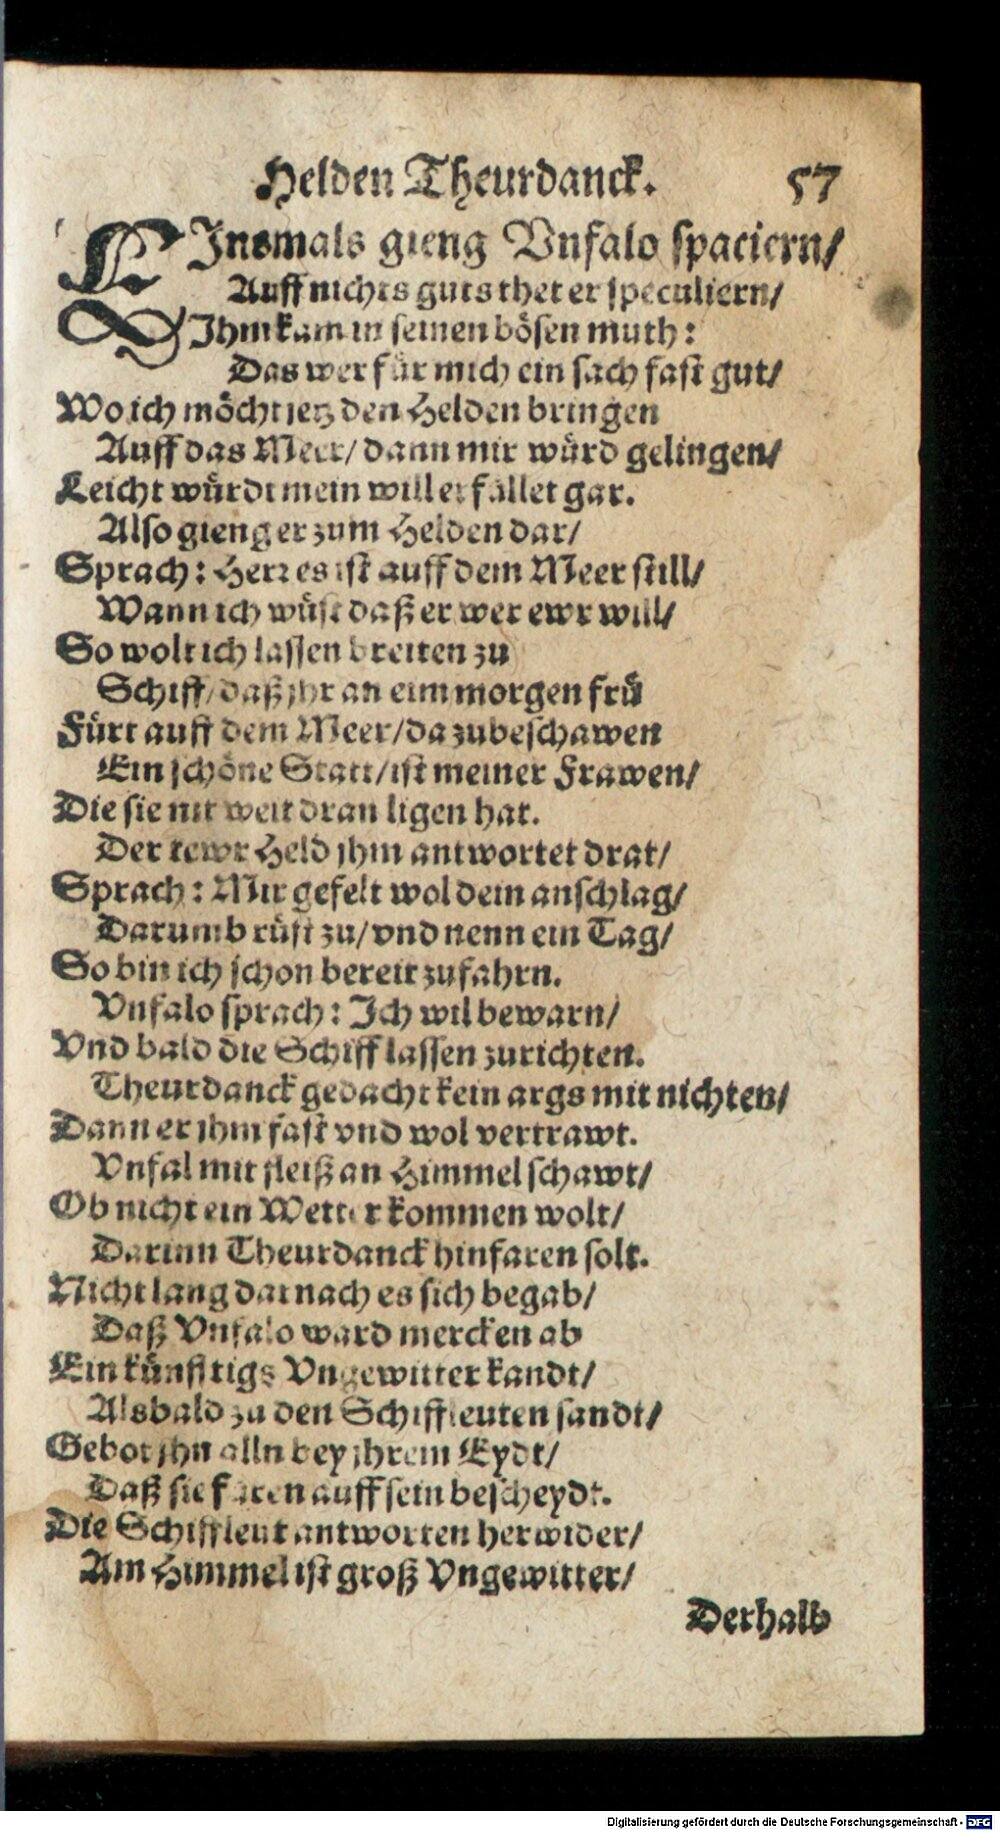 Helden Theurdanck. 57
EInsmals gieng Vnfalo spaciern/
Auff nichts guts thet er speculiern/
Ihm kam in seinen bösen muth:
Das wer für mich ein sach fast gut/
Wo ich möcht jetz den Helden bringen
Auff das Meer/ dann mir würd gelingen/
Leicht würdt mein will erfüllet gar.
Also gieng er zum Helden dar/
Sprach: Herr es ist auff dem Meer still/
Wann ich wüst daß er wer ewr will/
So wolt ich lassen breiten zu
Schiff/ daß jhr an eim morgen frü
Fürt auff dem Meer/ da zubeschawen
Ein schöne Statt/ ist meiner Frawen/
Die sie nit weit dran ligen hat.
Der tewr Held jhm antwortet drat/
Sprach: Mir gefelt wol dein anschlag/
Darumb rüst zu/ vnd nenn ein Tag/
So bin ich schon bereit zufahrn.
Vnfalo sprach: Ich wil bewarn/
Vnd bald die Schiff lassen zurichten.
Theurdanck gedacht kein args mit nichten/
Dann er jhm fast vnd wol vertrawt.
Vnfal mit fleiß an Himmel schawt/
Ob nicht ein Wetter kommen wolt/
Darinn Theurdanck hinfaren solt.
Nicht lang darnach es sich begab/
Daß Vnfalo ward mercken ab
Ein künfftigs Vngewitter kandt/
Alsbald zu den Schiffleuten sandt/
Gebot jhn alln bey jhrem Eydt/
Daß sie faren auff sein bescheydt.
Die Schiffleut antworten herwider/
Am Himmel ist groß Vngewitter/
Derhalb
Digitalisierung gefördert durch die Deutsche Forschungsgemeinschaft - DFG